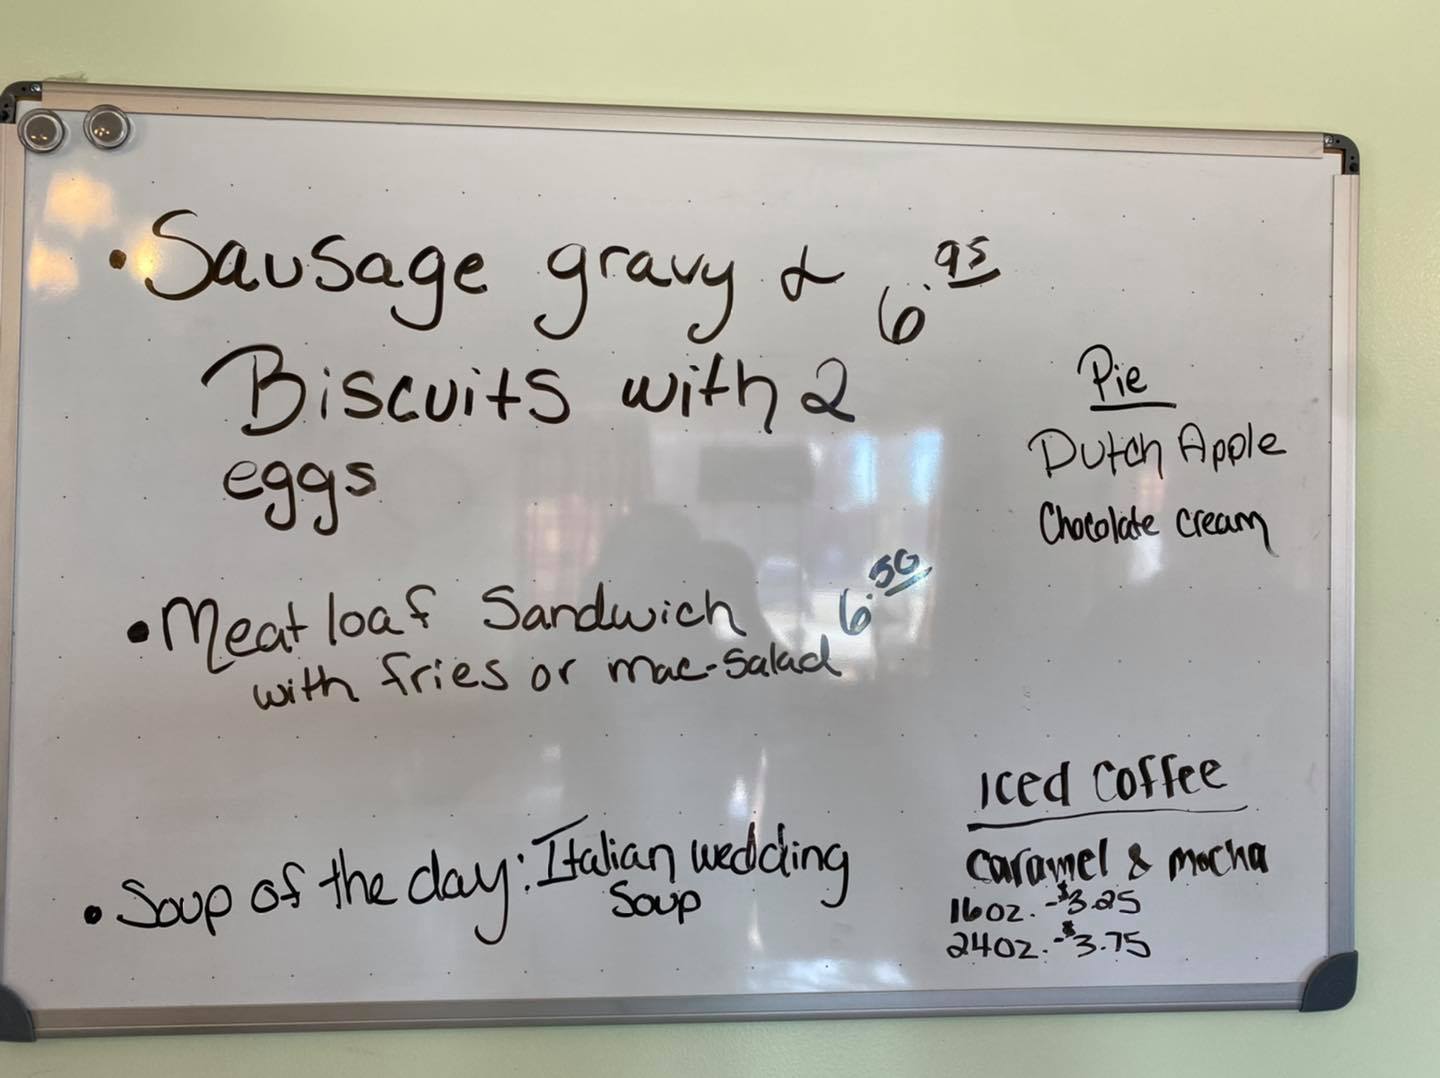 • Sausage gravy & 6.95
Biscuits with 2
eggs
• Meatloaf Sandwich 6.50
with fries or mac-salad
• Soup of the day: Italian wedding
Soup
Pie
Dutch Apple
Chocolate cream
Iced Coffee
caramel & mocha
16oz. - $3.25
24oz. - $3.75